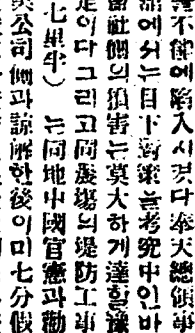 害不能에陷入시켯다奉天總領事
館에서는目下對策을考究中인바
會社側의損害는莫大하게達할豫
定이다그리고同農場의堤防工事
七里半)는同地中國官憲과勸
業公司側과諒解한後이미七分假